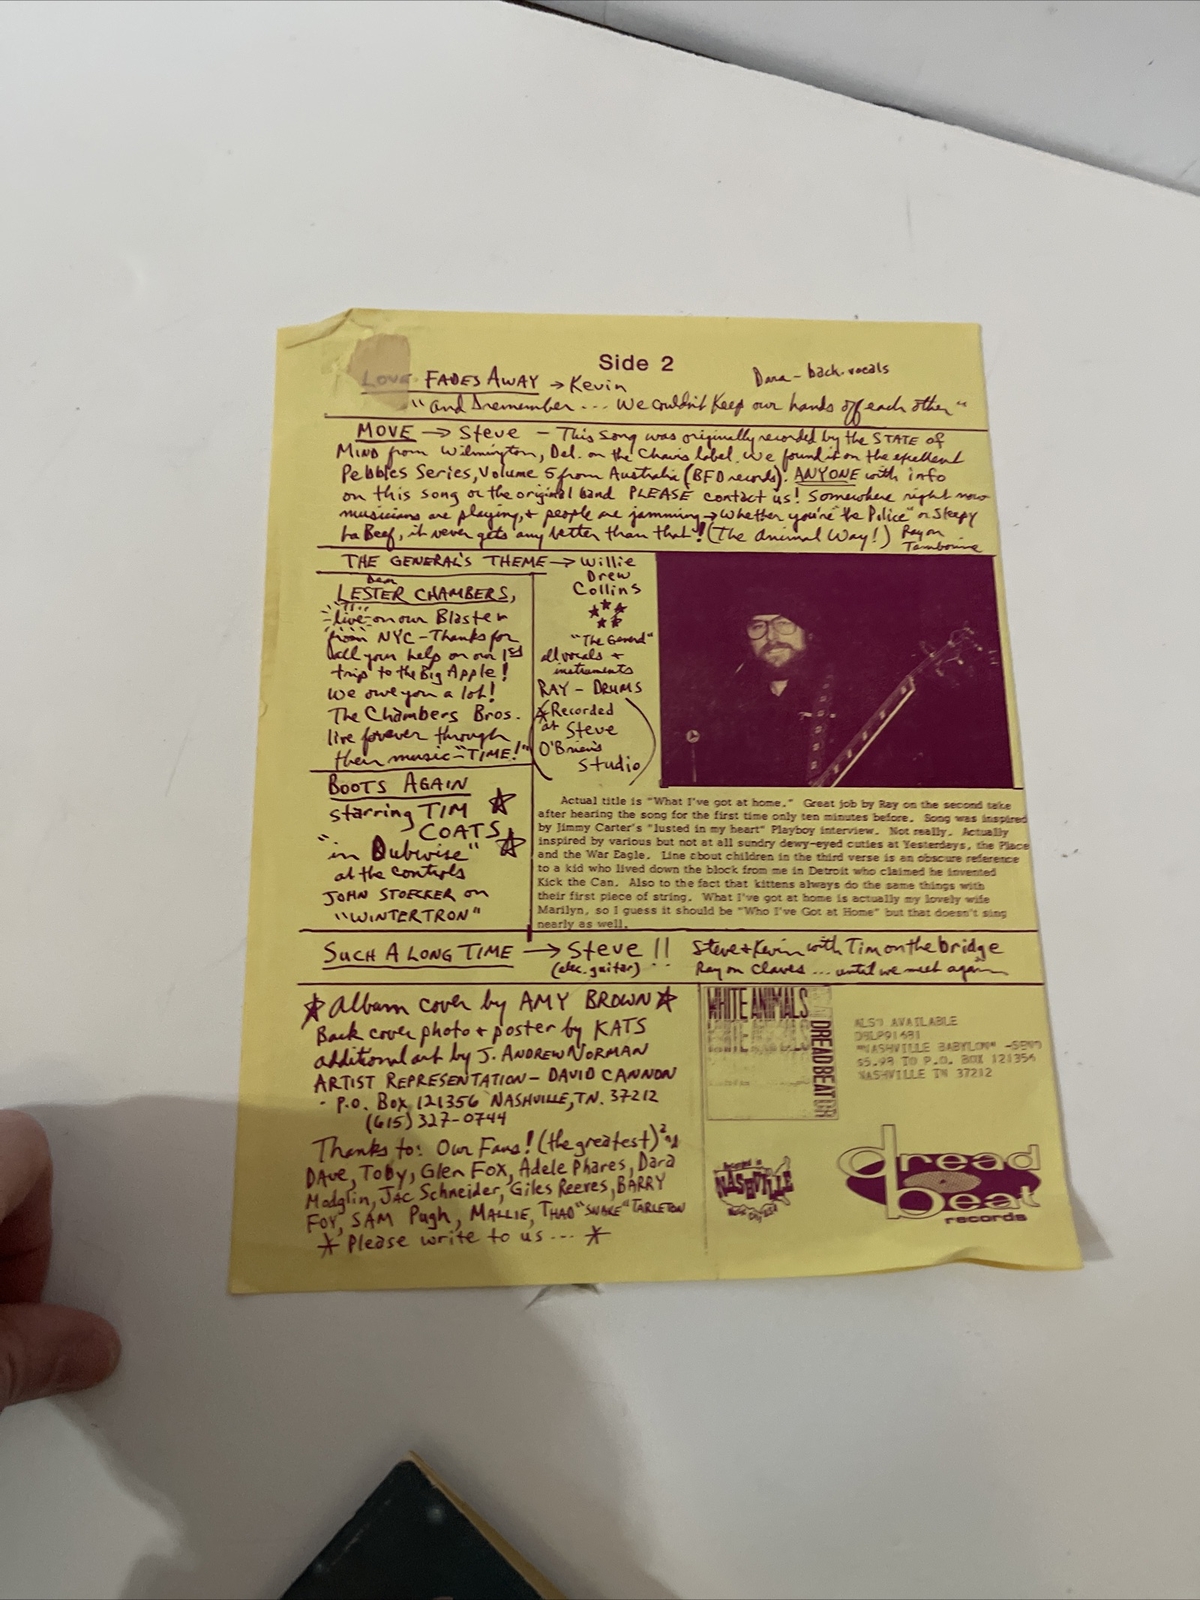 Side 2
LOVE FADES AWAY → Kevin
Dana - back. vocals
"and I remember... We couldn't keep our hands off each other"
MOVE → Steve - This song was originally recorded by the STATE of
MIND from Wilmington, Del. on the Chavis label. We found it on the excellent
Pebbles Series, Volume 5 from Australia (BFD records). ANYONE with info
on this song or the original band PLEASE contact us! Somewhere right now
musicians are playing, + people are jamming → Whether you're "the Police" or Sleepy
La Beef, it never gets any better than that! (The Animal Way!) Ray on
Tambourine
THE GENERAL'S THEME → Willie
Drew
Collins
"The General"
all vocals +
instruments
RAY - DRUMS
Recorded
at Steve
O'Brien's
Studio
Dear
LESTER CHAMBERS,
live on our Blaster
from NYC - Thanks for
all your help on our 1st
trip to the Big Apple!
We owe you a lot!
The Chambers Bros.
live forever through
their music - "TIME!"
BOOTS AGAIN
starring TIM
COATS
"in Dubwise"
at the controls
JOHN STOECKER on
"WINTERTRON"
Actual title is "What I've got at home." Great job by Ray on the second take
after hearing the song for the first time only ten minutes before. Song was inspired
by Jimmy Carter's "lusted in my heart" Playboy interview. Not really. Actually
inspired by various but not at all sundry dewy-eyed cuties at Yesterdays, the Place
and the War Eagle. Line about children in the third verse is an obscure reference
to a kid who lived down the block from me in Detroit who claimed he invented
Kick the Can. Also to the fact that kittens always do the same things with
their first piece of string. What I've got at home is actually my lovely wife
Marilyn, so I guess it should be "Who I've Got at Home" but that doesn't sing
nearly as well.
SUCH A LONG TIME → Steve !!
(elec. guitar)
Steve + Kevin with Tim on the bridge
Ray on Claves ... until we meet again
Album cover by AMY BROWN
Back cover photo + poster by KATS
additional art by J. ANDREW NORMAN
ARTIST REPRESENTATION - DAVID CANNON
- P.O. Box 121356 NASHVILLE, TN. 37212
(615) 327-0744
Thanks to: Our Fans! (the greatest)
DAVE, TOBY, Glen Fox, Adele Phares, Dara
Modglin, JAC Schneider, Giles Reeves, BARRY
FOY, SAM Pugh, MALLIE, THAD "SNAKE" TARLETON
* Please write to us... *
WHITE ANIMALS
WHITE ANIMALS
DREADBEAT
ALSO AVAILABLE
DBLP91681
"NASHVILLE BABYLON" -SEND
$5.98 TO P.O. BOX 121356
NASHVILLE TN 37212
Recorded in
NASHVILLE
Music City USA
dread
beat
records